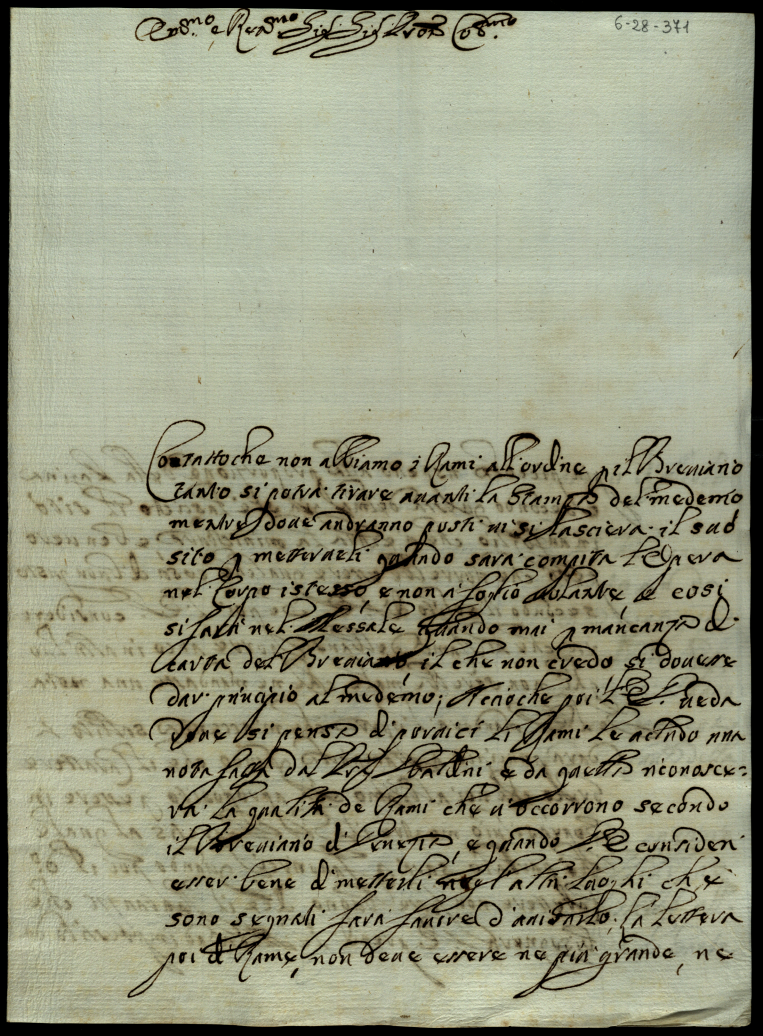 6-28-371
e Re.mo Sig. Sig. Pron Col.mo
Contattoche non abbiamo i Rami all'ordine p il Breuiario
tanto si potra tirare auanti la Stampa del medemo
mentre doue andranno posti ui si lasciera il suo
sito p metterueli quando sarà compita l'Opera
nel Corpo istesso, e non a foglio uolante e cosi
si farà nel Messale quando mai p mancanza di
carta del Breuiario il che non credo si douesse
dar principio al medemo; Accioche poi V.S. ueda
doue si pensa di poruici li Rami le acludo una
nota fatta dal Baldini e da questa riconosce=
ra la qualità de Rami che ui occorrono secondo
il Breuiario di Venezia, e quando V.S. consideri
esser bene di metterli negl'altri luoghi che
sono segnati fara fauore d'auisarlo, la lettera
poi di Rame, non deue essere ne più grande, ne